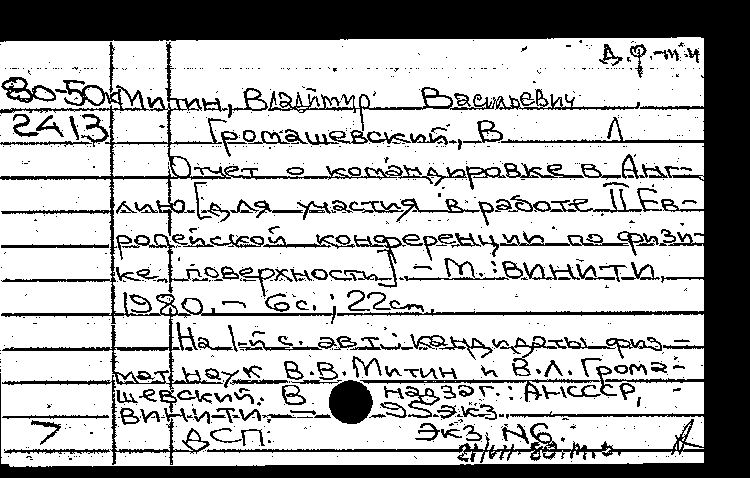 Д.Ф.-м.н
80-50к Митин, Владимир Васильевич
2413 Громашевский, В Л
Отчет о командировке в Анг-
лию [для участия в работе II Ев-
ропейской конференции по физи-
ке поверхности]. - М. : ВИНИТИ,
1980. - 6с. ; 22см.
На 1-й с. авт. : кандидаты физ.-
мат. наук В.В.Митин и В.Л. Грома-
шевский. В надзаг. : АНСССР,
ВИНИТИ. - 95экз.
7 ДСП. Экз. N6.
21/VII-80.М.Б.